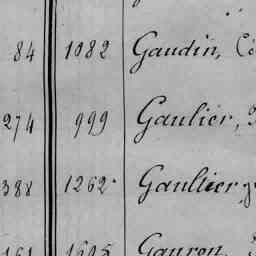 84 1082 Gaudin,
274 999 Gaulier,
388 1262 Gaultier,
161 1605 Gauron,